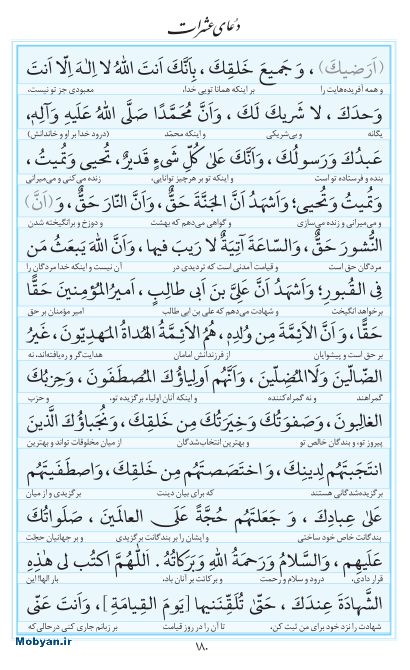 دعای عشرات
(اَرَضیكَ) ، وَ جَمیعَ خَلقِكَ ، بِاَنَّكَ اَنتَ اللهُ لا اِلٰهَ اِلّا اَنتَ
و همه آفریده‌هایت را بر اینکه همانا تویی خدا، معبودی جز تو نیست،
وَحدَكَ ، لا شَریكَ لَكَ ، وَاَنَّ مُحَمَّدًا صَلَّی اللهُ عَلَیهِ وَآلِهٖ،
یگانه و بی‌شریکی و اینکه محمّد (درود خدا بر او و خاندانش)
عَبدُكَ وَرَسولُكَ ، وَاَنَّكَ عَلیٰ كُلِّ شَیءٍ قَدیرٌ، تُحیی وَتُمیتُ ،
بنده و فرستاده تو است و اینکه تو بر هر چیز توانایی، زنده می‌کنی و می‌میرانی
وَتُمیتُ وَتُحیی؛ وَاَشهَدُ اَنَّ الجَنَّةَ حَقٌّ، وَاَنَّ النّارَ حَقٌّ ، وَ (اَنَّ)
و می‌میرانی و زنده می‌سازی و گواهی می‌دهم که بهشت و دوزخ و برانگیخته شدن
النُّشورَ حَقٌّ ، وَالسّاعَةَ آتِیَةٌ لا رَیبَ فیها ، وَاَنَّ اللهَ یَبعَثُ مَن
مردگان حق است و قیامت آمدنی است که تردیدی در آن نیست و اینکه خدا مردگان را
فِی القُبورِ؛ وَاَشهَدُ اَنَّ عَلِیَّ بنَ اَبی طالِبٍ ، اَمیرُ المُؤمِنینَ حَقًّا
برخواهد انگیخت و شهادت می‌دهم که علی بن ابی طالب امیر مؤمنان بر حق
حَقًّا ، وَ اَنَّ الاَئِمَّةَ مِن وُلدِهٖ ، هُمُ الاَئِمَّةُ الهُداةُ المَهدِیّونَ ، غَیرُ
بر حق است و پیشوایان از فرزندانش امامان هدایت‌گر و ره‌یافته‌اند، نه
الضّالّینَ وَلَا المُضِلّینَ ، وَاَنَّهُم اَولِیاؤُكَ المُصطَفَونَ ، وَحِزبُكَ
گمراهند و نه گمراه‌کننده و اینکه آنان اولیاء برگزیده تو، و حزب
الغالِبونَ ، وَصَفوَتُكَ وَخِیَرَتُكَ مِن خَلقِكَ، وَنُجَباؤُكَ الَّذینَ
پیروز تو، و بندگان خالص تو و بهترین انتخاب‌شدگان از میان مخلوقات تواند و بهترین
انتَجَبتَهُم لِدینِكَ، وَ اختَصَصتَهُم مِن خَلقِكَ، وَاصطَفَیتَهُم
برگزیده‌شدگانی هستند که برای بیان دینت برگزیدی و از میان
عَلیٰ عِبادِكَ ، وَ جَعَلتَهُم حُجَّةً عَلَی العالَمینَ ، صَلَواتُكَ
بندگانت خاص خود ساختی و ایشان را بر بندگانت برگزیدی و بر جهانیان حجّت
عَلَیهِم ، وَالسَّلامُ وَرَحمَةُ اللهِ وَبَرَكاتُهُ . اَللّٰهُمَّ اكتُب لی هٰذِهِ
قرار دادی، درود و سلام و رحمت و برکاتت بر آنان باد، بار الها! این
الشَّهادَةَ عِندَكَ ، حَتّیٰ تُلَقِّنَنیها [یَومَ القِیامَةِ] ، وَاَنتَ عَنّی
شهادت را نزد خود برای من ثبت کن، تا آن را در روز قیامت بر زبانم جاری کنی درحالی‌که
۱۸۰
Mobyan.ir